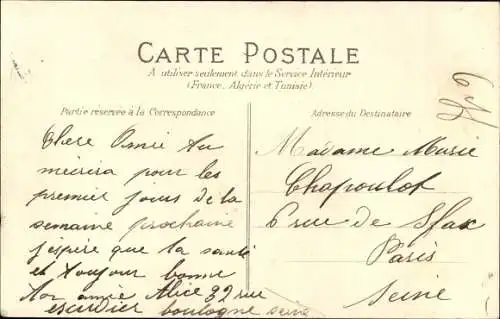 CARTE POSTALE
A utiliser seulement dans le Service Intérieur
(France, Algérie et Tunisie)
Partie réservée à la Correspondance
Adresse du Destinataire
Chere Amie tu
pour les
premier jours de la
semaine prochaine
j'espère que ta santé
et toujour bonne
ton amie Alice 92 rue
escudier boulogne seine
Madame Marie
Chapoulot
6 rue de Sfax
Paris
Seine